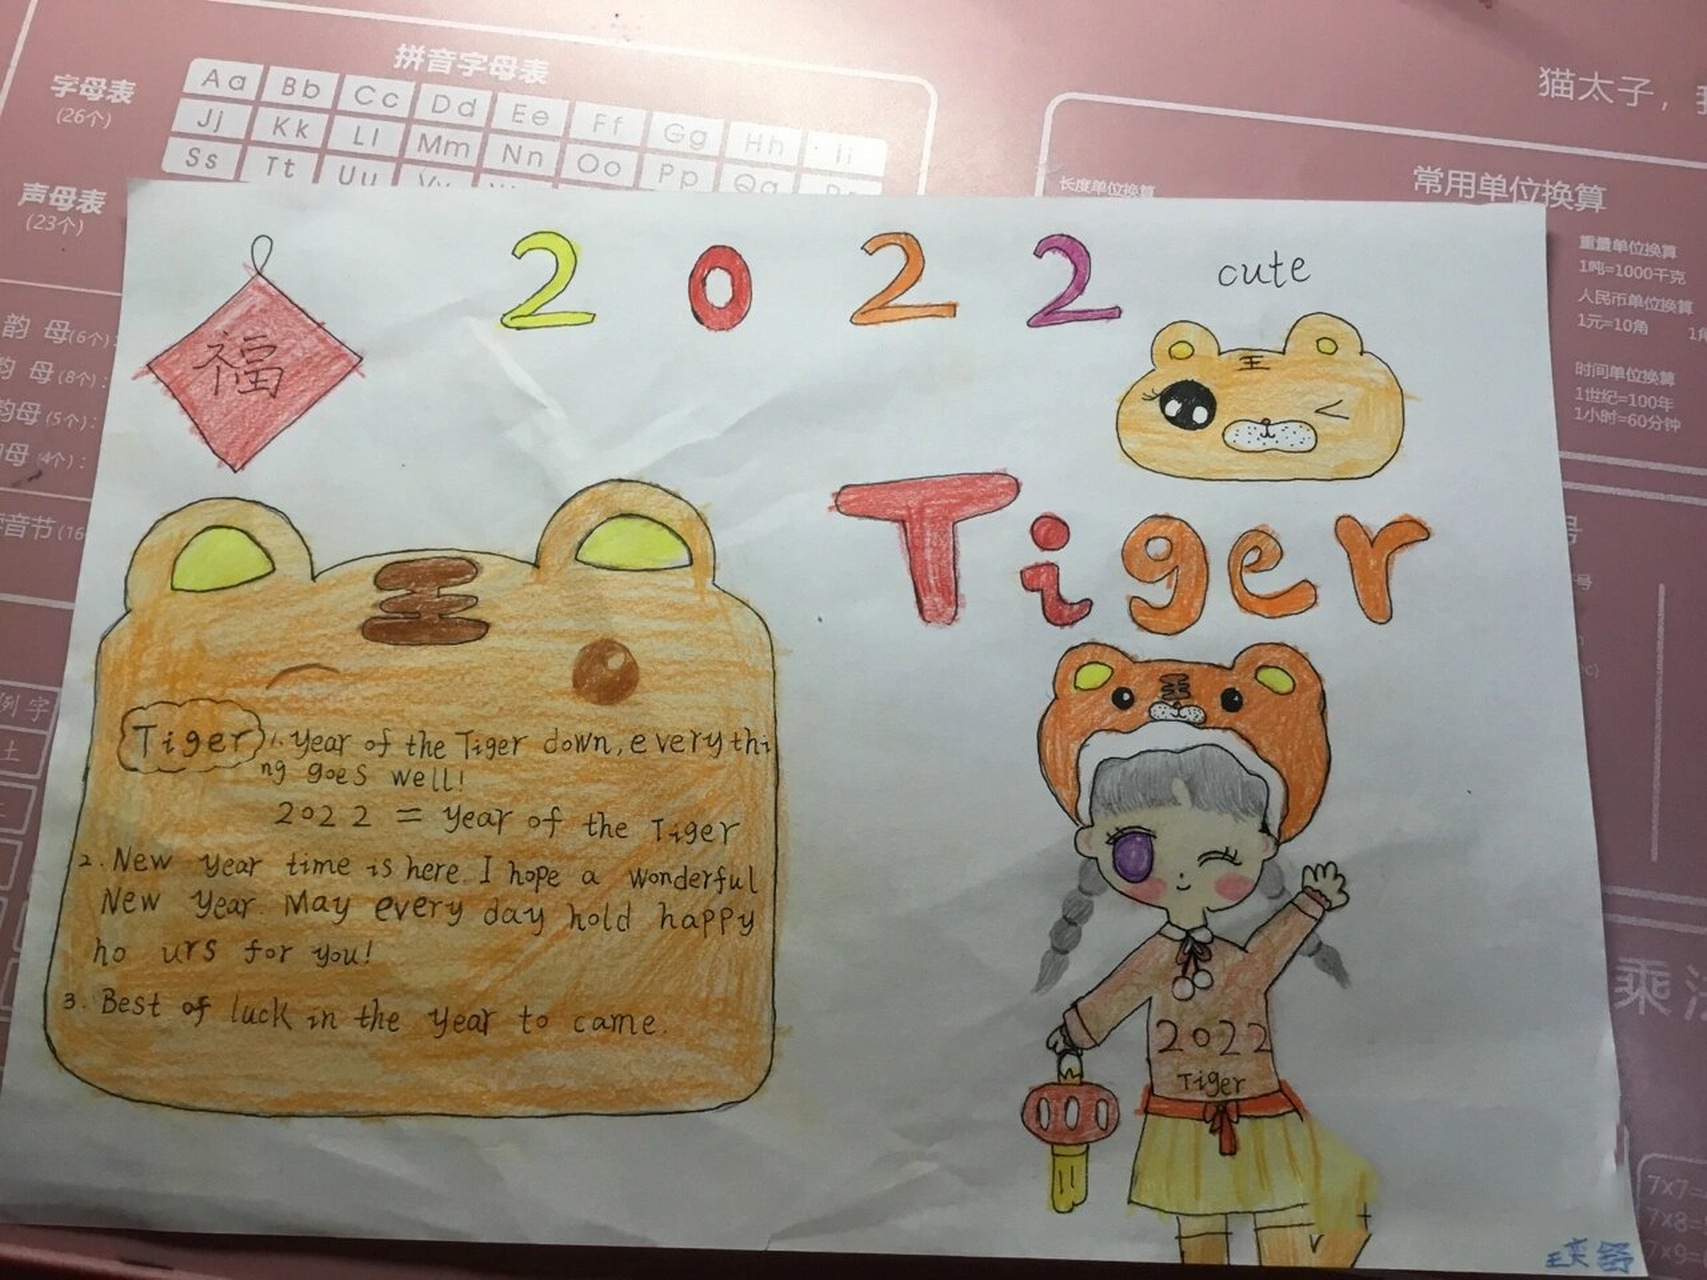 拼音字母表
字母表
(26个)
Aa Bb Cc Dd Ee Ff Gg Hh Ii
Jj Kk Ll Mm Nn Oo Pp Qq
Ss Tt Uu
声母表
(23个)
猫太子，
常用单位换算
长度单位换算
重量单位换算
1吨=1000千克
人民币单位换算
1元=10角
时间单位换算
1世纪=100年
1小时=60分钟
韵 母(6个):
母(8个):
韵母(5个):
母(4个):
音节(16
例字
土
乘
7×7=
7×8=
7×9=
2022
cute
福
王
Tiger
王
Tiger 1. Year of the Tiger down, everythi
ng goes well!
2022 = Year of the Tiger
2. New Year time is here. I hope a wonderful
New Year. May every day hold happy
ho urs for you!
3. Best of luck in the year to came.
王
2022
Tiger